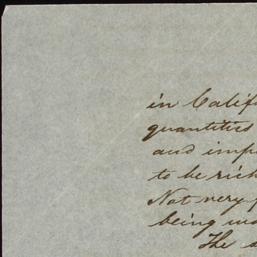 in Califo
quantities
and impo
to be rich
Not very f
being wo
The s